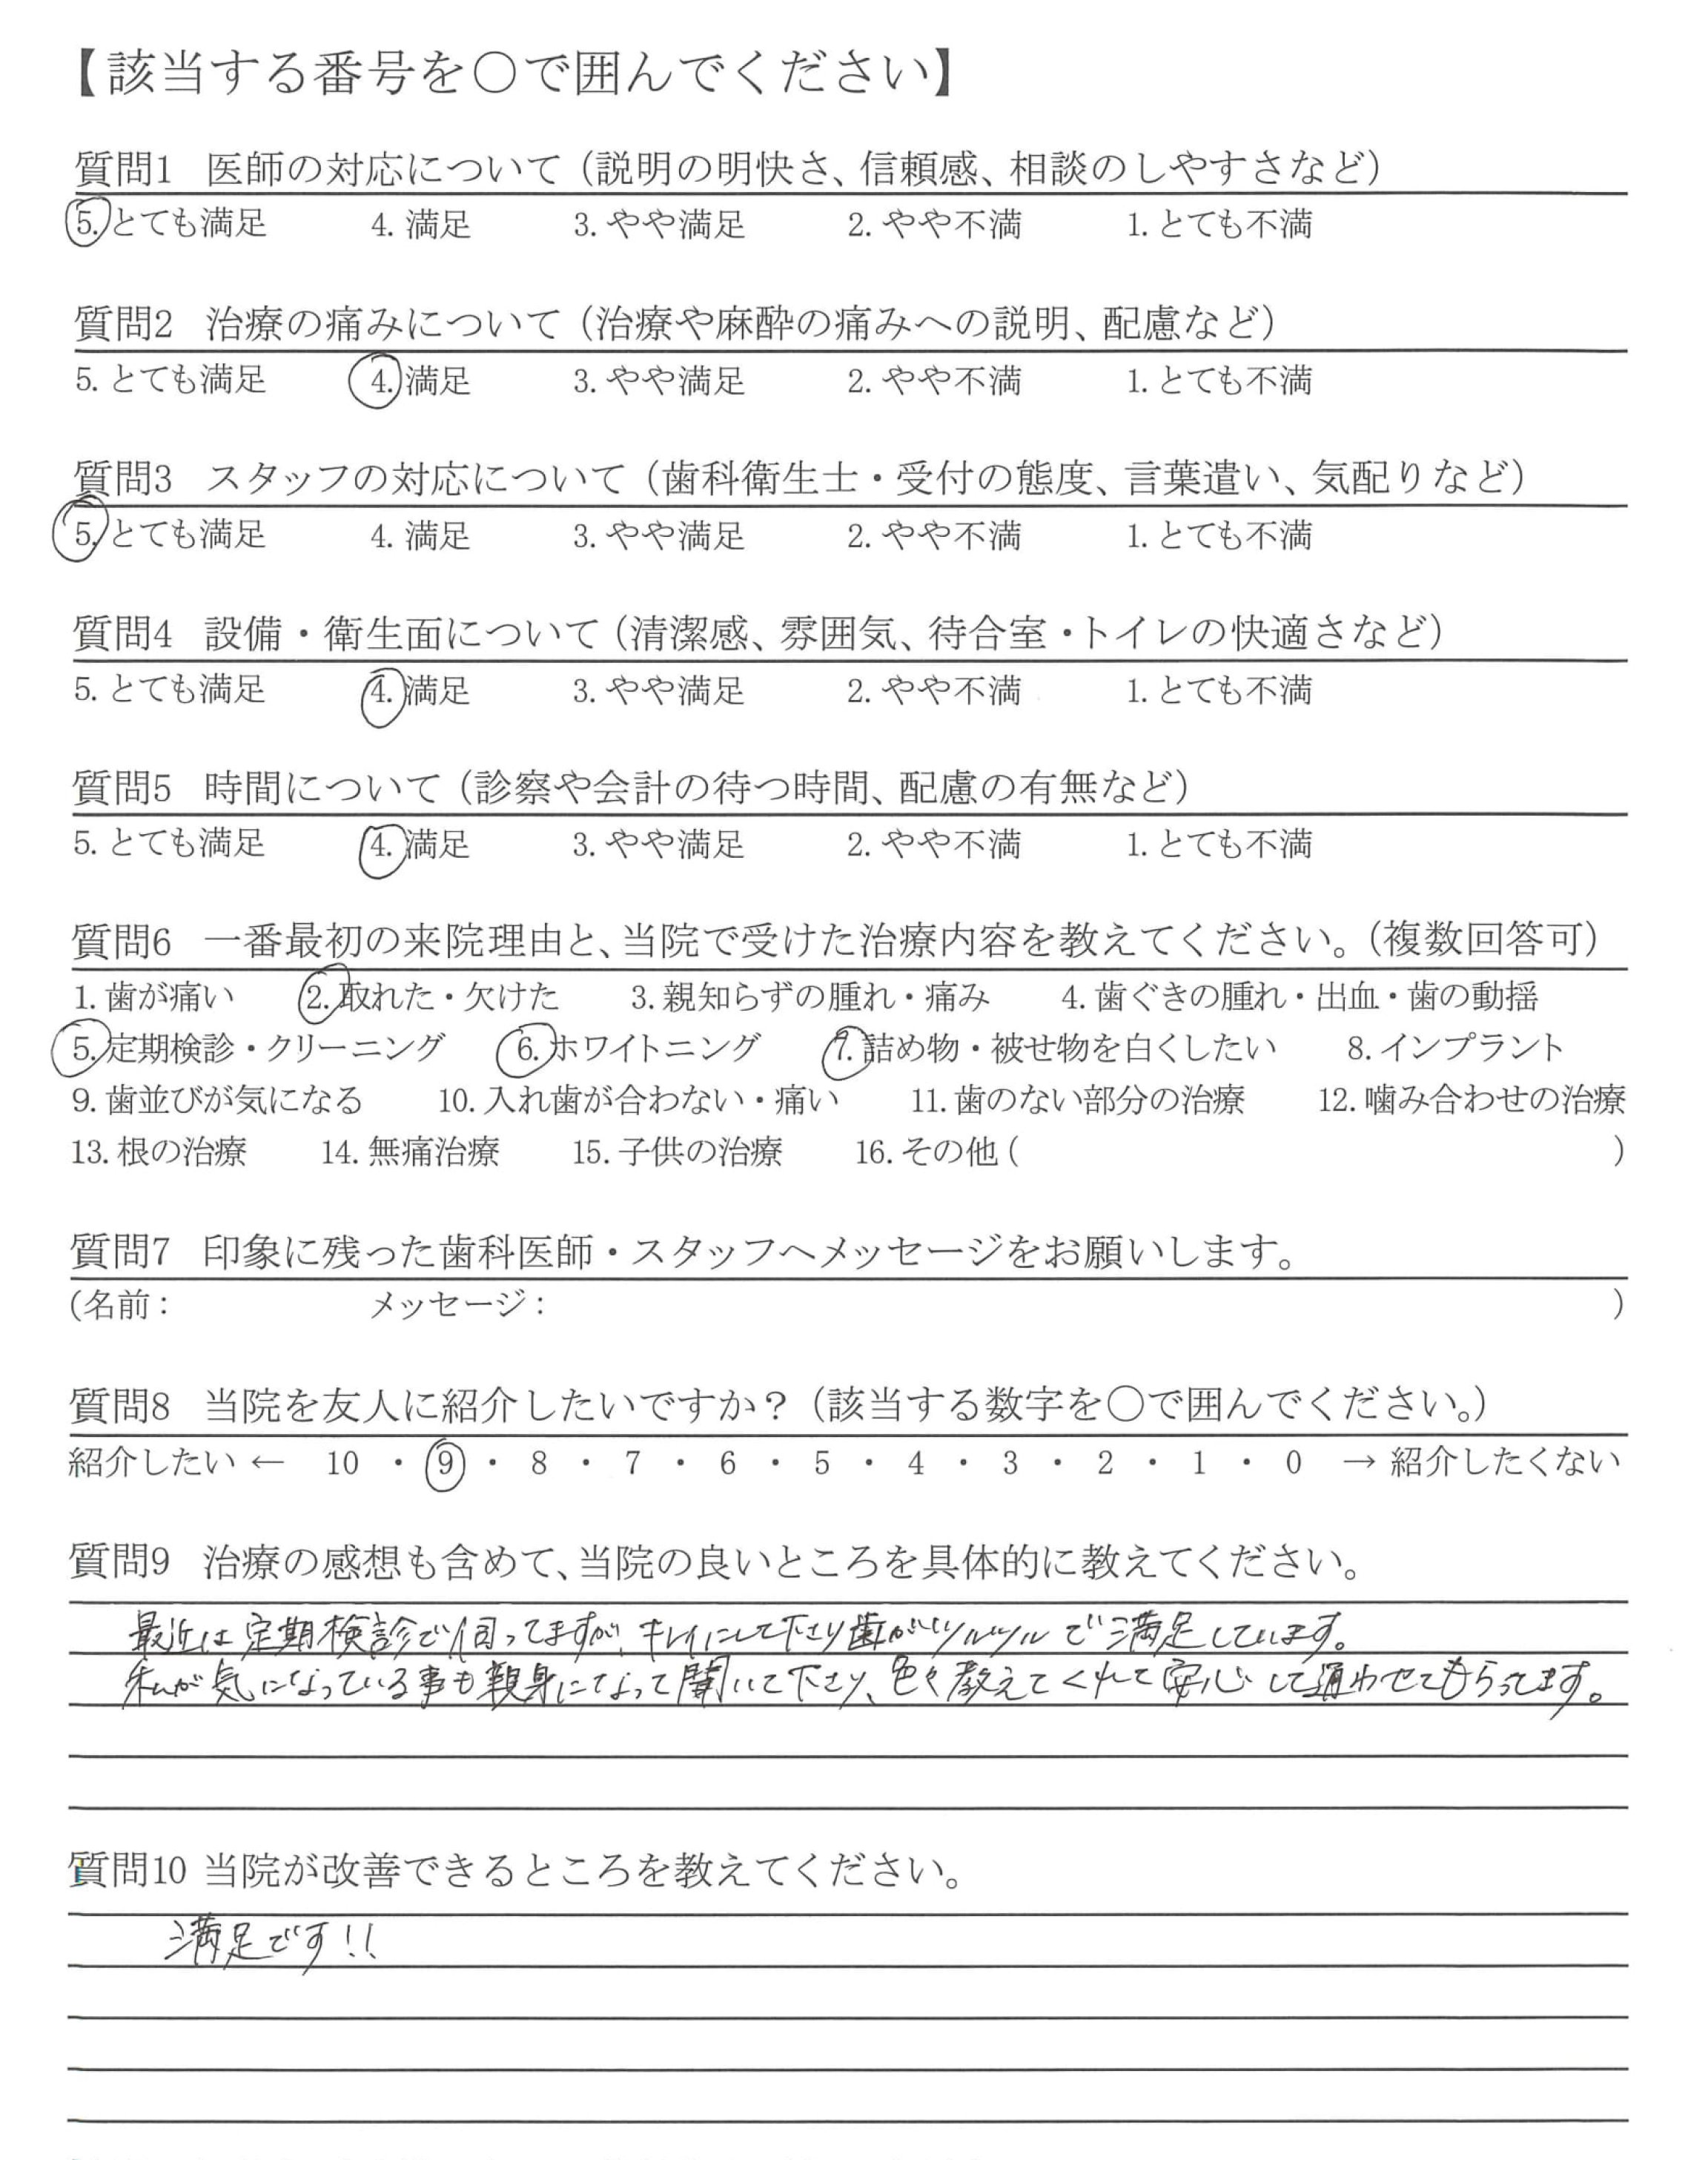 【該当する番号を〇で囲んでください】
質問1 医師の対応について（説明の明快さ、信頼感、相談のしやすさなど）
5. とても満足 4. 満足 3. やや満足 2. やや不満 1. とても不満
質問2 治療の痛みについて（治療や麻酔の痛みへの説明、配慮など）
5. とても満足 4. 満足 3. やや満足 2. やや不満 1. とても不満
質問3 スタッフの対応について（歯科衛生士・受付の態度、言葉遣い、気配りなど）
5. とても満足 4. 満足 3. やや満足 2. やや不満 1. とても不満
質問4 設備・衛生面について（清潔感、雰囲気、待合室・トイレの快適さなど）
5. とても満足 4. 満足 3. やや満足 2. やや不満 1. とても不満
質問5 時間について（診察や会計の待つ時間、配慮の有無など）
5. とても満足 4. 満足 3. やや満足 2. やや不満 1. とても不満
質問6 一番最初の来院理由と、当院で受けた治療内容を教えてください。（複数回答可）
1. 歯が痛い 2. 取れた・欠けた 3. 親知らずの腫れ・痛み 4. 歯ぐきの腫れ・出血・歯の動揺
5. 定期検診・クリーニング 6. ホワイトニング 7. 詰め物・被せ物を白くしたい 8. インプラント
9. 歯並びが気になる 10. 入れ歯が合わない・痛い 11. 歯のない部分の治療 12. 噛み合わせの治療
13. 根の治療 14. 無痛治療 15. 子供の治療 16. その他 ( )
質問7 印象に残った歯科医師・スタッフへメッセージをお願いします。
(名前： メッセージ： )
質問8 当院を友人に紹介したいですか？（該当する数字を〇で囲んでください。）
紹介したい ← 10 ・ 9 ・ 8 ・ 7 ・ 6 ・ 5 ・ 4 ・ 3 ・ 2 ・ 1 ・ 0 → 紹介したくない
質問9 治療の感想も含めて、当院の良いところを具体的に教えてください。
最近は定期検診で伺ってますが、キレイにして下さり歯がツルツルで満足しています。
私が気になっている事も親身になって聞いて下さり、色々教えてくれて安心して通わせてもらってます。
質問10 当院が改善できるところを教えてください。
満足です!!